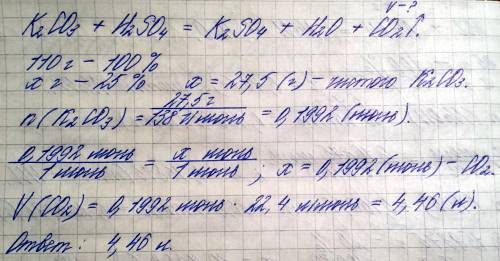 V-?
K2CO3 + H2SO4 = K2SO4 + H2O + CO2↑.
110 г – 100 %
x г – 25 % x = 27,5 (г) – чистого K2CO3.
n(K2CO3) = 27,5 г / 138 г/моль = 0,1992 (моль).
0,1992 моль / 1 моль = x моль / 1 моль ; x = 0,1992 (моль) – CO2.
V(CO2) = 0,1992 моль · 22,4 л/моль = 4,46 (л).
Ответ: 4,46 л.